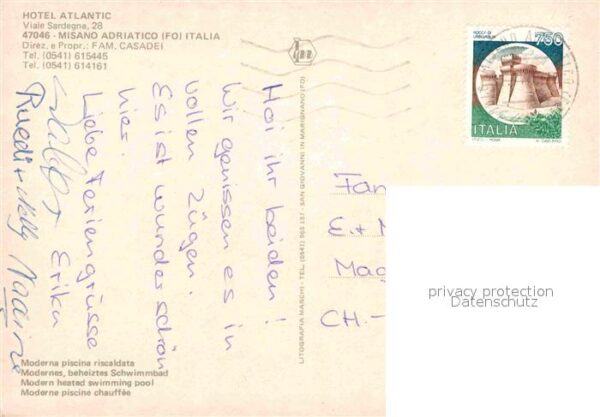 HOTEL ATLANTIC
Viale Sardegna, 28
47046 - MISANO ADRIATICO (FO) ITALIA
Direz. e Propr.: FAM. CASADEI
Tel. (0541) 615445
Tel. (0541) 614161
750
ITALIA
Hoi ihr beiden!
Wir geniessen es in
vollen Zügen.
Es ist wunderschön
hier.
Liebe Feriengrüsse
Erika
Ruedi
Nelly
LITOGRAFIA MASCHI - TEL. (0541) 955 187 - SAN GIOVANNI IN MARIGNANO (FO)
Fam
E. +
Mag
CH.-
privacy protection
Datenschutz
Moderna piscina riscaldata
Modernes, beheiztes Schwimmbad
Modern heated swimming pool
Moderne piscine chauffée